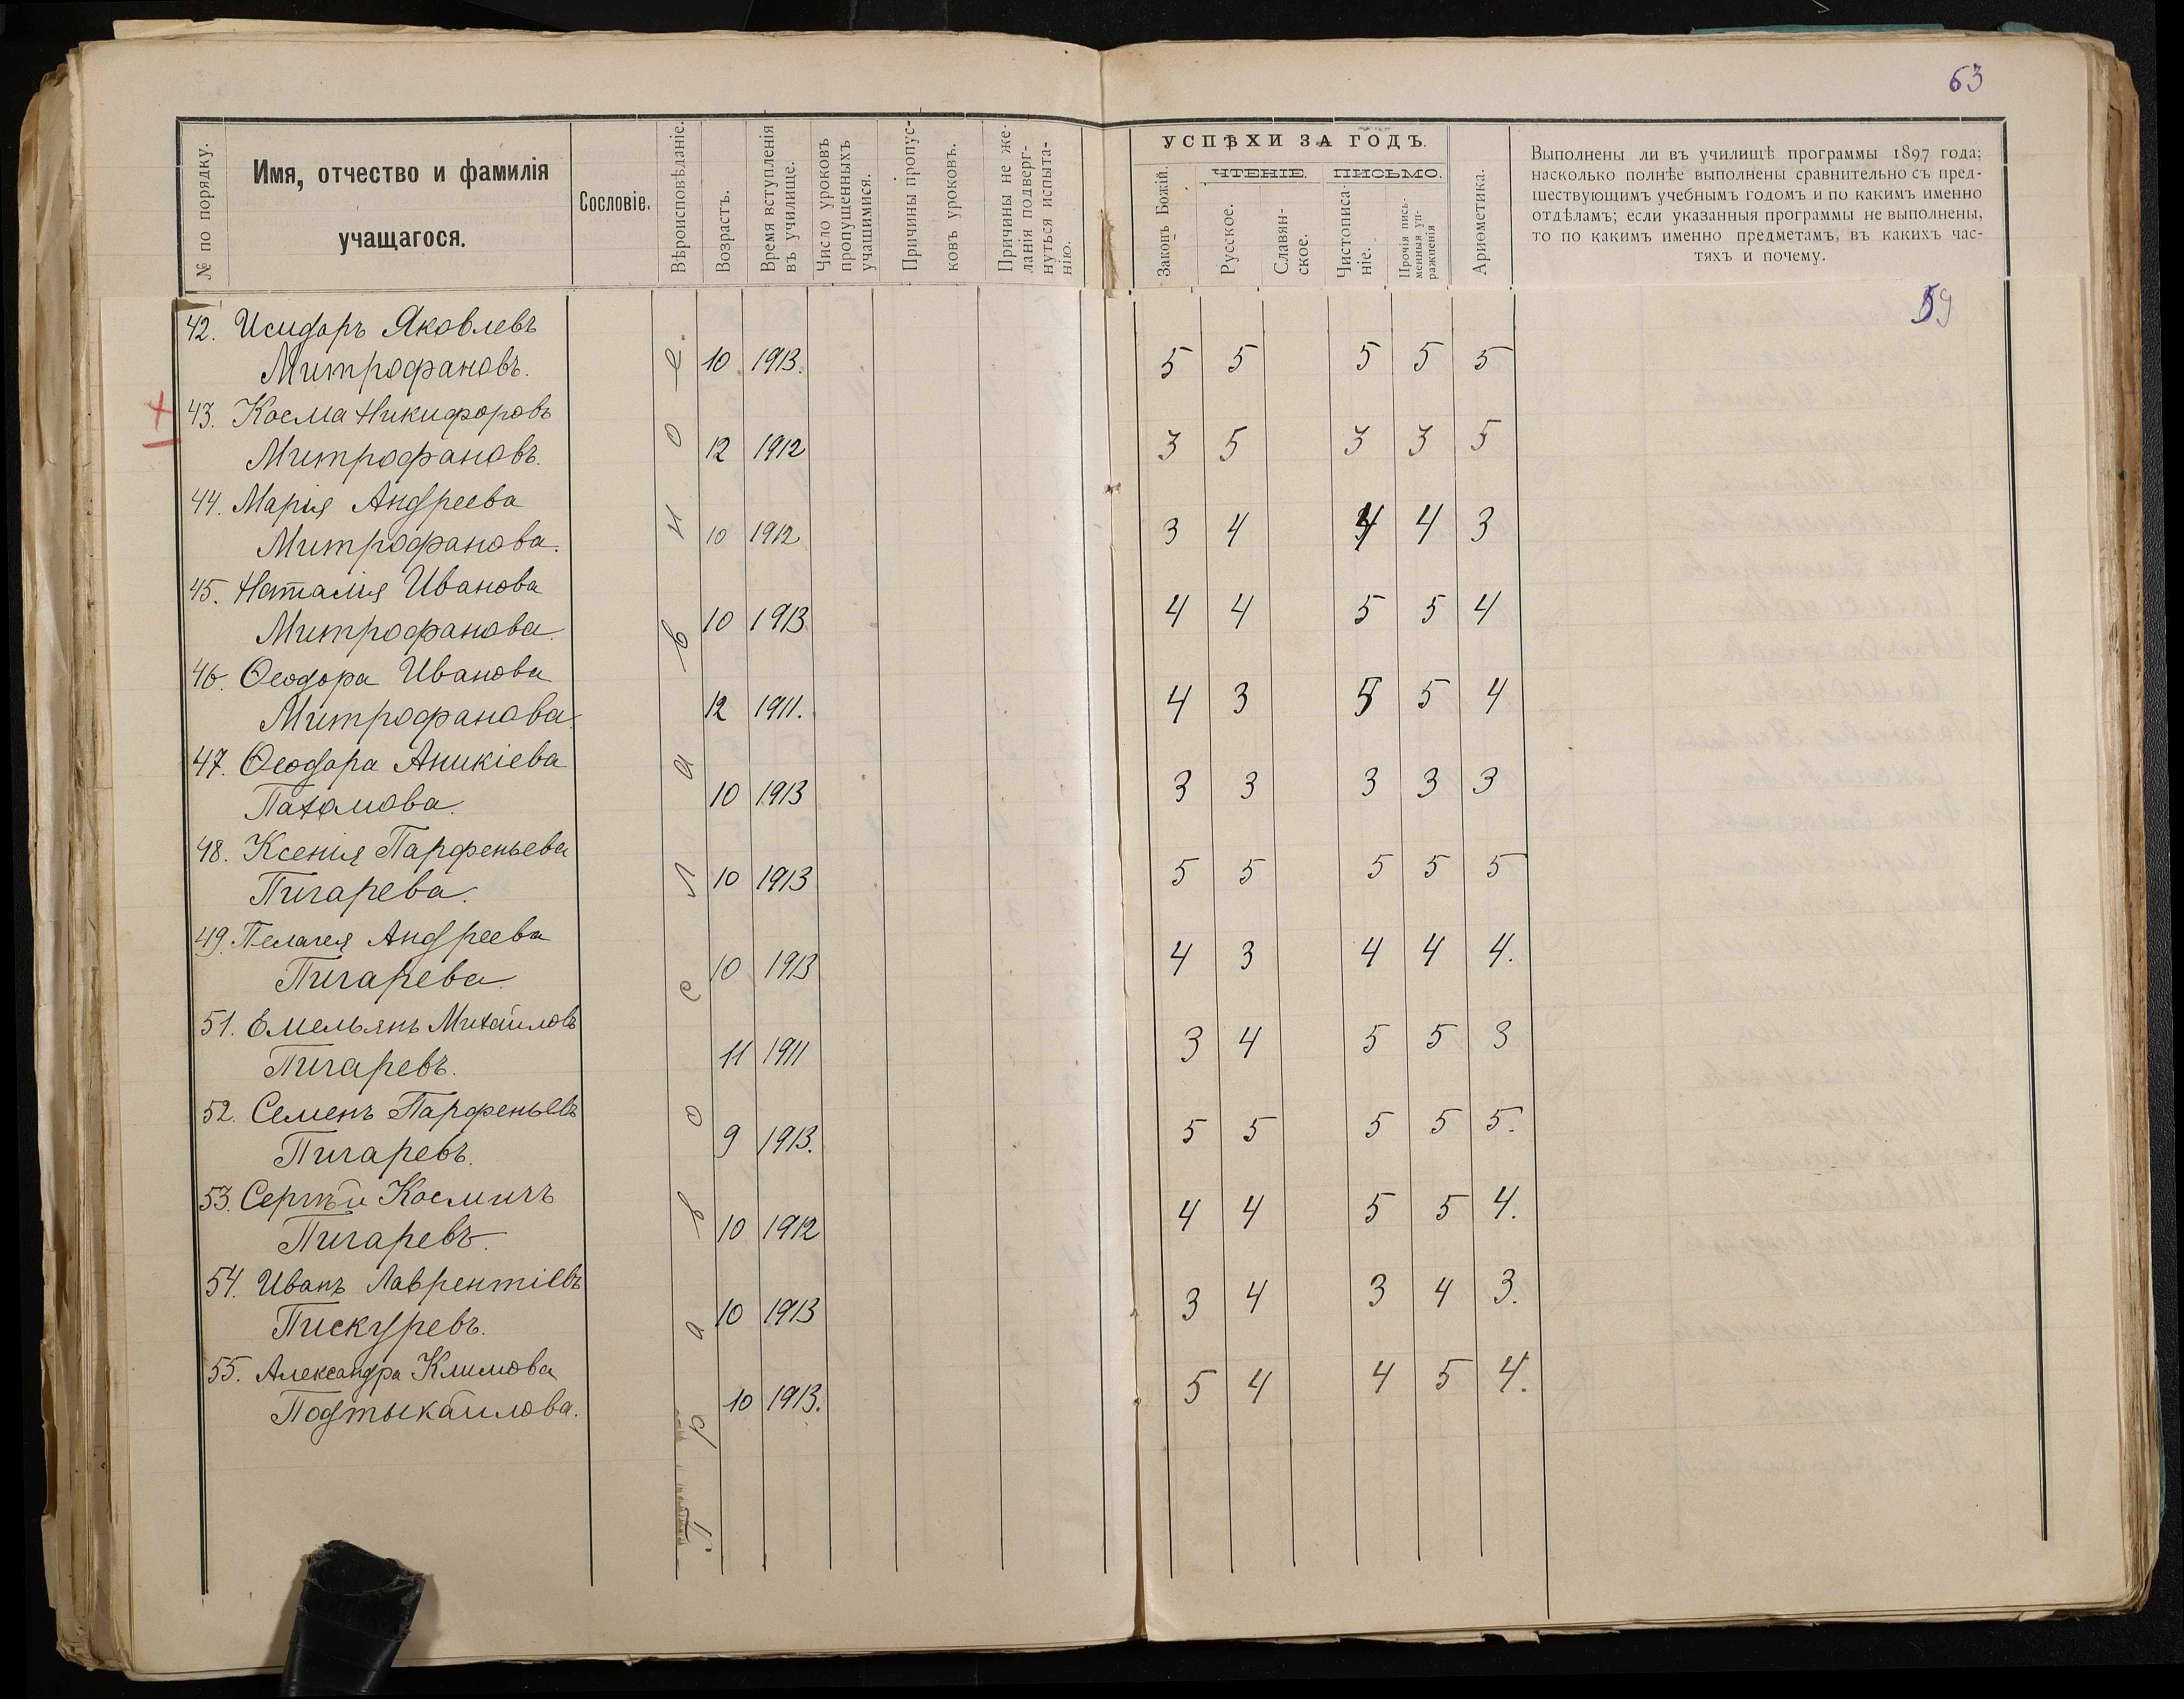 63
№ по порядку.
Имя, отчество и фамилія
учащагося.
Сословіе.
Вѣроисповѣданіе.
Возрастъ.
Время вступленія
въ училище.
Число уроковъ
пропущенныхъ
учащимися.
Причины пропус-
ковъ уроковъ.
Причины не же-
ланія подверг-
нуться испыта-
нію.
УСПѢХИ ЗА ГОДЪ.
Законъ Божій.
ЧТЕНІЕ.
Русское.
Славян-
ское.
ПИСЬМО.
Чистописа-
ніе.
Прочія пись-
менныя уп-
ражненія
Ариѳметика.
Выполнены ли въ училищѣ программы 1897 года;
насколько полнѣе выполнены сравнительно съ пред-
шествующимъ учебнымъ годомъ и по какимъ именно
отдѣламъ; если указанныя программы не выполнены,
то по какимъ именно предметамъ, въ какихъ час-
тяхъ и почему.
59
Православное.
42. Исидоръ Яковлевъ
Митрофановъ. 10 1913. 5 5 5 5 5
43. Косма Никифоровъ
Митрофановъ. 12 1912 3 5 3 3 5
44. Марія Андреева
Митрофанова. 10 1912 3 4 4 4 3
45. Наталія Иванова
Митрофанова. 10 1913 4 4 5 5 4
46. Ѳеодора Иванова
Митрофанова. 12 1911. 4 3 5 5 4
47. Ѳеодора Аникіева
Пахомова. 10 1913 3 3 3 3 3
48. Ксенія Парфеньева
Пигарева. 10 1913 5 5 5 5 5
49. Пелагея Андреева
Пигарева. 10 1913 4 3 4 4 4.
51. Емельянъ Михайловъ
Пигаревъ. 11 1911 3 4 5 5 3
52. Семенъ Парфеньевъ
Пигаревъ. 9 1913. 5 5 5 5 5.
53. Сергѣй Космичъ
Пигаревъ. 10 1912 4 4 5 5 4.
54. Иванъ Лаврентіевъ
Пискуревъ. 10 1913 3 4 3 4 3.
55. Александра Климова
Подтыкайлова. 10 1913. 5 4 4 5 4.